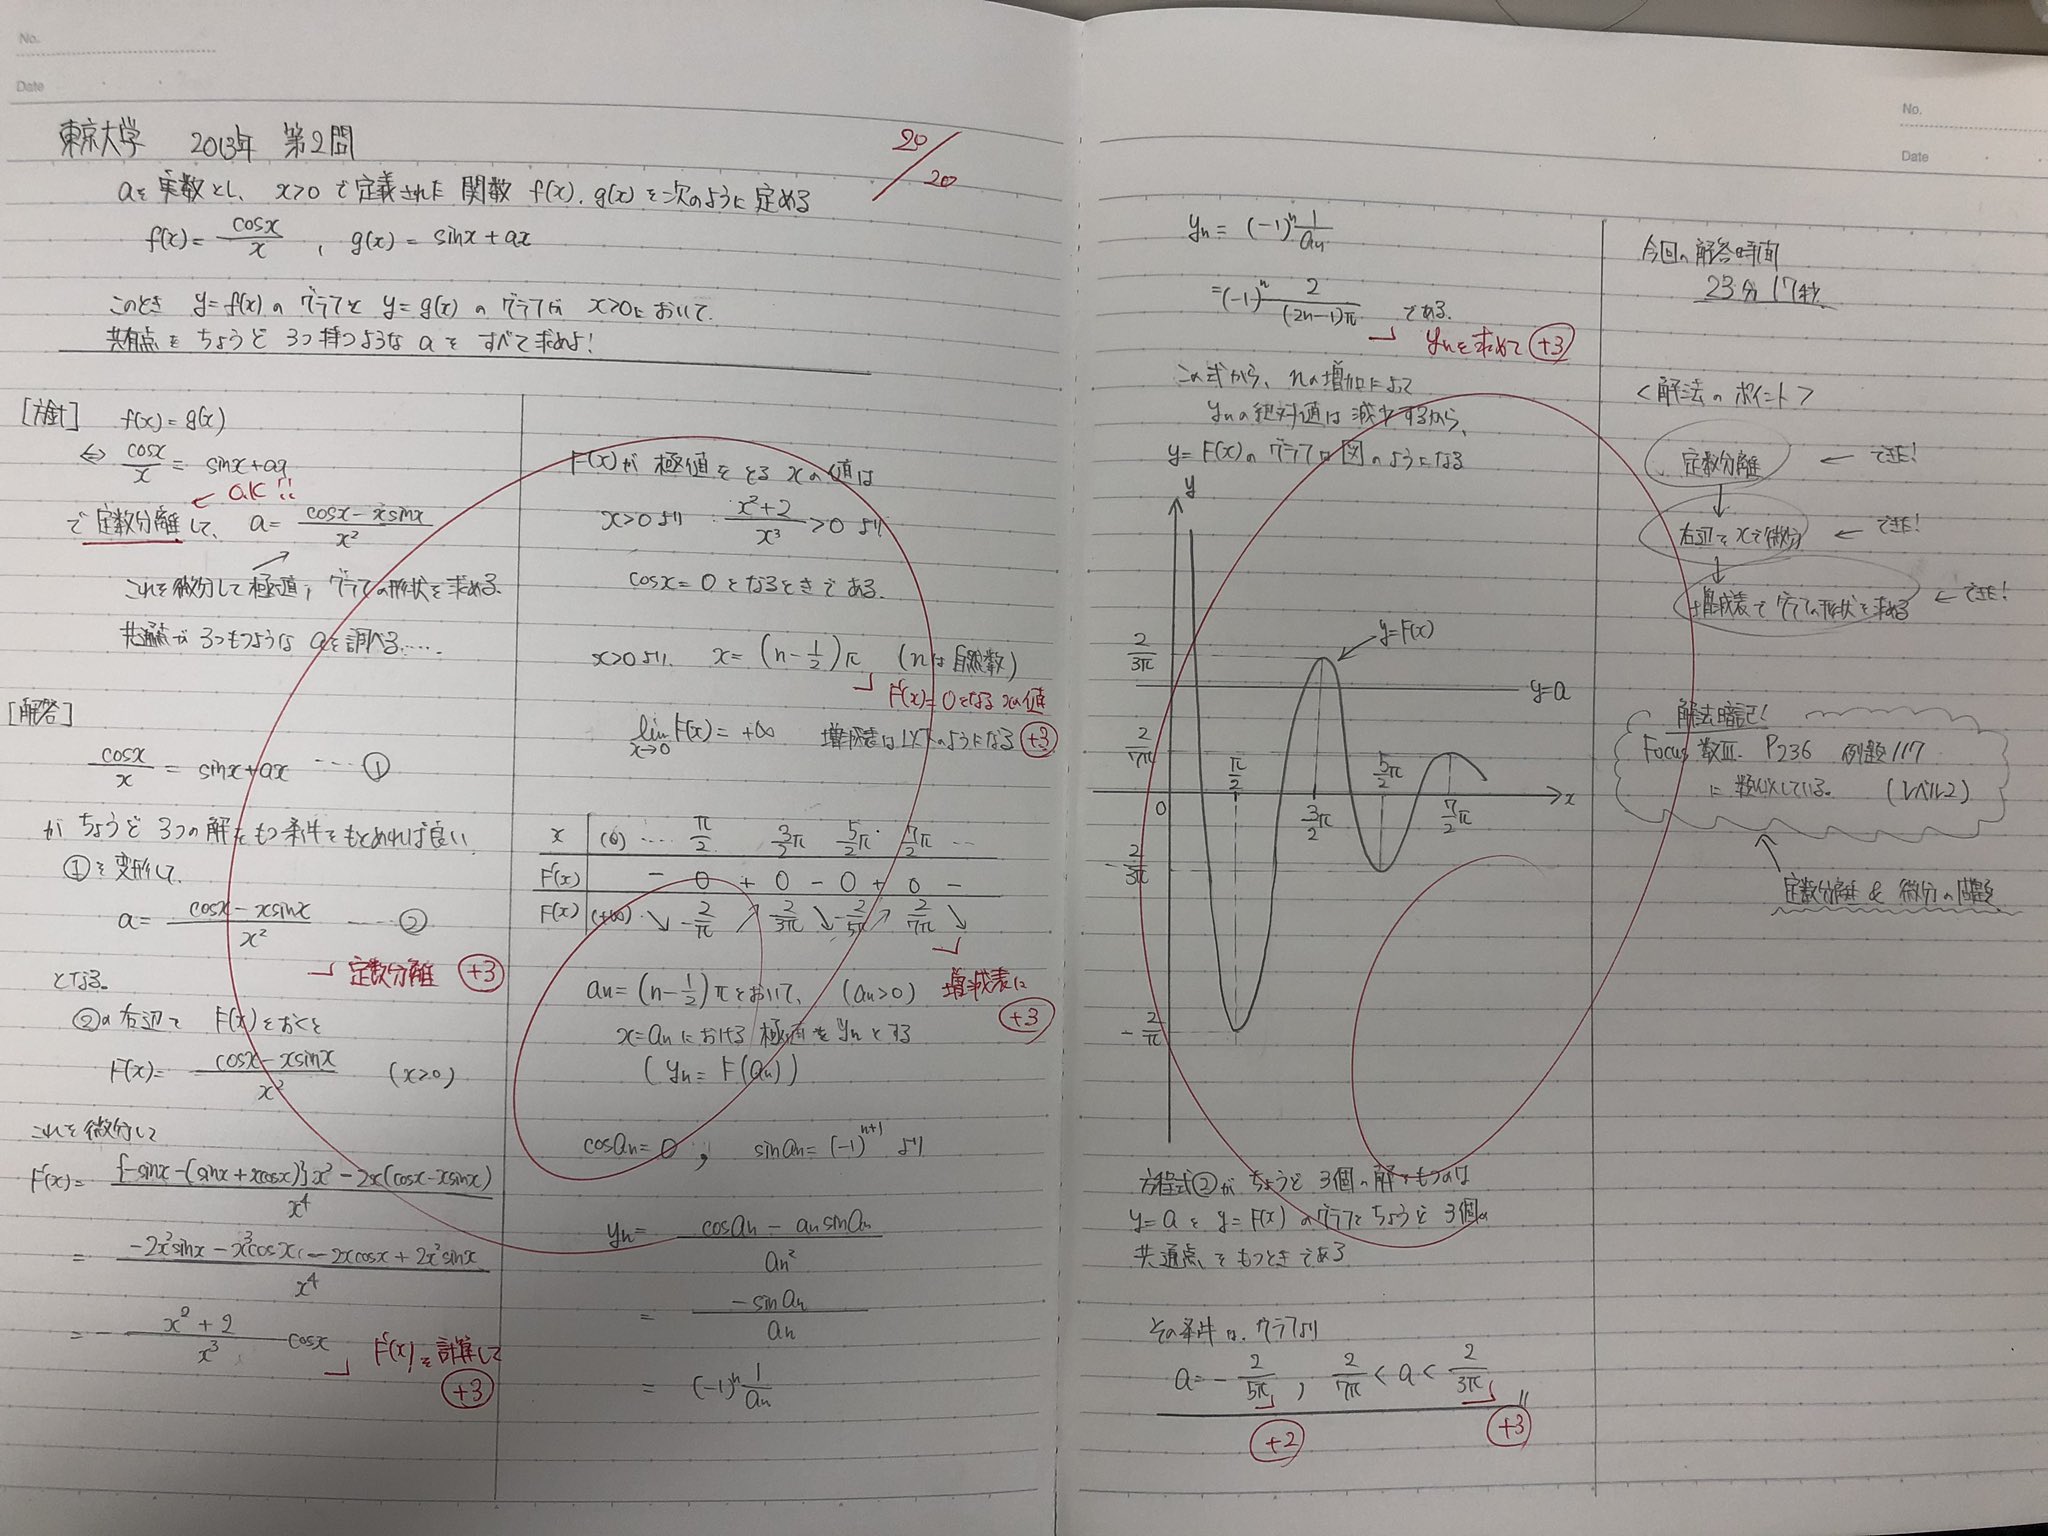 No.
Date
東京大学 2013年 第2問
20/20
aを実数とし、x>0で定義された関数 f(x), g(x)を次のように定める
f(x)= cosx/x , g(x)= sinx+ax
このとき y=f(x)のグラフと y=g(x)のグラフが x>0において
共有点をちょうど3つ持つような aをすべて求めよ!
[方針] f(x)=g(x)
⇔ cosx/x = sinx+ax
← ok!!
で定数分離して、 a= (cosx-xsinx)/x²
これを微分して極値, グラフの形状を求める.
共通点が3つもつような aを調べる.....
[解答]
cosx/x = sinx+ax ---①
がちょうど3つの解をもつ条件をもとめれば良い
①を変形して.
a= (cosx-xsinx)/x² ---②
定数分離 +3
となる。
②の右辺を F(x)とおくと
F(x)= (cosx-xsinx)/x² (x>0)
これを微分して
F'(x)= ({-sinx-(sinx+xcosx)}x²-2x(cosx-xsinx))/x⁴
= (-2x²sinx-x³cosx-2xcosx+2x²sinx)/x⁴
= - (x²+2)/x³ cosx
F'(x)を計算して +3
F(x)が極値をとる xの値は
x>0より (x²+2)/x³ >0 より
cosx=0となるときである.
x>0より. x=(n-1/2)π (nは自然数)
F'(x)=0となる xの値 +3
lim x→0 F(x)=+∞ 増減表は以下のようになる
x (0) ... π/2 3/2π 5/2π 7/2π ...
F'(x) - 0 + 0 - 0 + 0 -
F(x) (+∞) ↘ -2/π ↗ 2/3π ↘ -2/5π ↗ 2/7π ↘
増減表に +3
an=(n-1/2)πとおいて、 (an>0)
x=anにおける極値を ynとする
(yn=F(an))
cosan=0, sinan=(-1)^(n+1) より
yn= (cosan-ansinan)/an²
= -sinan/an
= (-1)^n 1/an
No.
Date
yn=(-1)^n 1/an
=(-1)^n 2/(2n-1)π である.
ynを求めて +3
この式から、nの増加によって
ynの絶対値は減少するから、
y=F(x)のグラフは図のようになる
y
y=F(x)
2/3π
y=a
2/7π
π/2 5/2π
0 3/2π 7/2π x
-2/3π
-2/π
方程式②がちょうど3個の解をもつのは
y=aと y=F(x)のグラフとちょうど3個の
共通点をもつときである
その条件は、グラフより
a=-2/5π , 2/7π<a<2/3π
+2 +3
今回の解答時間
23分17秒
<解法のポイント>
定数分離 ← できた!
↓
右辺を xで微分 ← できた!
↓
増減表でグラフの形状を求める ← できた!
解法暗記!
Focus 数Ⅲ. P236 例題117
に類似している。 (レベル2)
定数分離 & 微分の問題